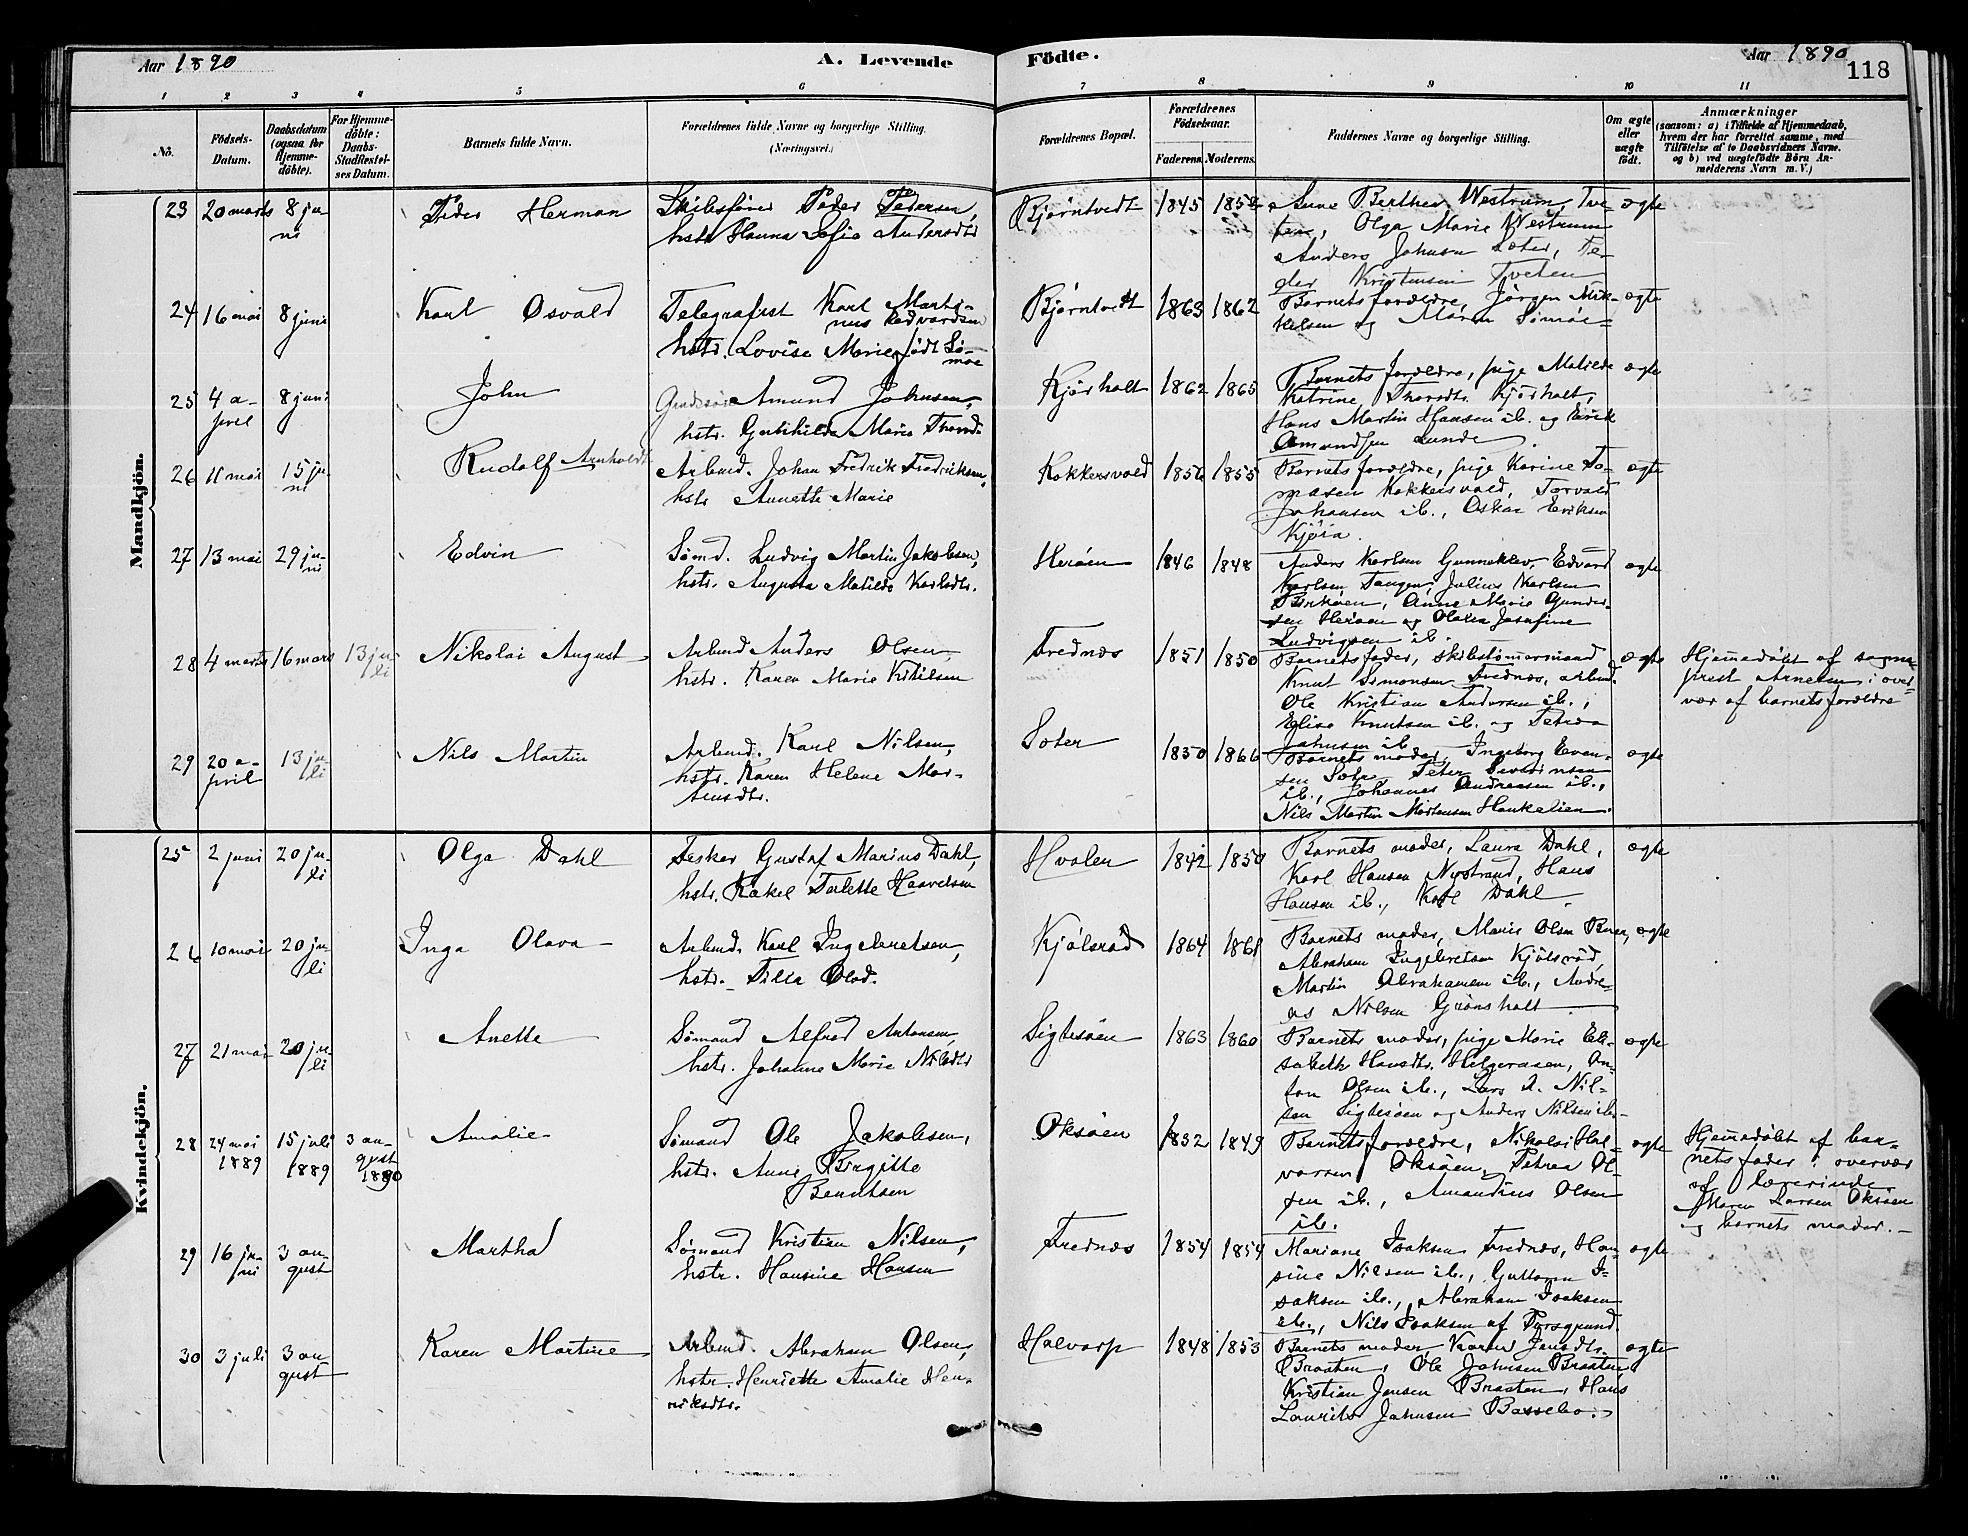 Aar 1890
A. Levende
Födte.
Aar 1890
118
1 2 3 4 5 6 7 8 9 10 11
No.
Födsels-
Datum.
Daabsdatum
(ogsaa for
Hjemme-
döbte).
For Hjemme-
döbte:
Daabs-
Stadfestel-
ses Datum.
Barnets fulde Navn.
Forældrenes fulde Navne og borgerlige Stilling.
(Næringsvei.)
Forældrenes Bopæl.
Forældrenes
Födselsaar.
Faderens. Moderens.
Faddernes Navne og borgerlige Stilling.
Om ægte
eller
uægte
födt.
Anmærkninger
(saasom: a) i Tilfælde af Hjemmedaab,
hvem der har forrettet samme, med
Tilföielse af to Daabsvidners Navne.
og b) ved uægtefödte Börn An-
melderens Navn m. V.)
Mandkjön.
23 20 marts 8 ju-
ni
Peder Herman
Skibsfører Peder Pedersen,
hstr. Hanna Sofie Andersdtr
Bjørntvedt 1845 1852
Anne Berthea Westrum, Tve-
ten, Olga Marie Westrum
Anders Johnsen Soter, Pe-
der Kristensen Tveten
ægte
24 16 mai 8 juni
Karl Osvald
Telegrafist Karl Marti-
nus Edvardsen
hstr. Lovise Marie født Sö-
moe
Bjørntvedt 1863 1862
Barnets forældre, Jørgen Mik-
kelsen og Maren Sömöe
ægte
25 4 a-
pril
8 juni
John
Amund Johnsen,
hstr. Gunhilda Marie Thors
Kjörholt 1862 1865
Barnets forældre, pige Matilde
Katrine Thorsdtr. Kjörholt,
Hans Martin Hansen ib. og Erik
Amundsen Lunde
ægte
26 11 mai 15 ju-
ni
Rudolf Arnholdt
Arbmd. Johan Fredrik Fredriksen,
hstr. Annette Marie
Kokkersvold 1856 1855
Barnets forældre, pige Karine To-
masen Kokkersvold, Torvald
Johansen ib., Oskar Eriksen
Kjöra.
ægte
27 13 mai 29 ju-
ni
Edvin
Sömd. Ludvig Martin Jakobsen,
hstr. Augusta Matilde Karlsdtr.
Heröen 1846 1848
Anders Karlsen Gunneklev, Edvard
Karlsen Tangen, Julius Karlsen
Birköen, Anne Marie Gunder-
sen Heröen og Olava Josefine
Ludvigsen ib.
ægte
28 4 marts 16 mars 13 ju-
li
Nikolai August
Arbmd Anders Olsen,
hstr. Karen Marie Kittilsen
Frednæs 1851 1850
Barnets fader, skibstömmermand
Knut Simonsen Frednæs, arbmd.
Ole Kristian Andersen ib.,
Elise Knutsen ib. og Petrea
Johnsen ib.
ægte
Hjemmedöbt af sogne-
prest Arnesen i over-
vær af barnets forældre
29 20 a-
pril
13 ju-
li
Nils Martin
Arbmd. Karl Nilsen,
hstr. Karen Helene Mar-
tinsdtr.
Soter 1850 1866
Barnets moder, Ingeborg Even-
sen Soter, Peter Severinsen
ib., Johannes Andreasen ib.,
Nils Martin Mortensen Haukelien.
ægte
Kvindekjön.
25 2 juni 20 ju-
li
Olga Dahl
Fisker Gustaf Marius Dahl,
hstr. Rakel Talette Haavelsen
Hvalen 1842 1850
Barnets moder, Laura Dahl,
Karl Hansen Nystrand, Hans
Hansen ib., Karl Dahl
ægte
26 10 mai 20 ju-
li
Inga Olava
Arbmd. Karl Ingebretsen,
hstr. Tilla Olsd.
Kjölsröd 1864 1861
Barnets moder, Maria Olsen Buer,
Abraham Ingebretsen Kjölsröd,
Martin Abrahamsen ib., Andre-
as Nilsen Grönsholt
ægte
27 21 mai 20 ju-
li
Anette
Sömand Alfred Antonsen,
hstr. Johanne Marie Nilsdtr
Sigtesöen 1863 1860
Barnets moder, pige Marie Eli-
sabeth Hansdtr. Helgeraaen, An-
ton Olsen ib., Lars A. Nil-
sen Sigtesöen og Anders Nilsen ib.
ægte
28 24 mai
1889
15 juli
1889
3 au-
gust
1890
Amalie
Sömand Ole Jakobsen,
hstr. Anne Birgitte
Bentsen
Oksöen 1852 1849
Barnets forældre, Nikolai Hal-
vorsen Oksöen, Petrea Ol-
sen ib., Amandius Olsen
ib.
ægte
Hjemmedöbt af bar-
nets fader i overvær
af lærerinde
Maren Larsen Oksöen
og barnets moder.
29 16 ju-
ni
3 au-
gust
Martha
Sømand Kristian Nilsen,
hstr. Hansine Hansen
Frednæs 1854 1854
Mariane Isaksen Frednæs, Han-
sine Nilsen ib., Guttorm I-
saksen ib., Abraham Isaksen
ib., Nils Isaksen af Porsgrund.
ægte
30 3 juli 3 au-
gust
Karen Martine
Arbmd. Abraham Olsen,
hstr. Henriette Amalie Hen-
riksdtr.
Halvarp 1848 1853
Barnets moder, Karen Jensdtr.
Braaten, Ole Johnsen Braaten,
Kristian Jensen Braaten, Hans
Laurits Johnsen Bassebo.
ægte